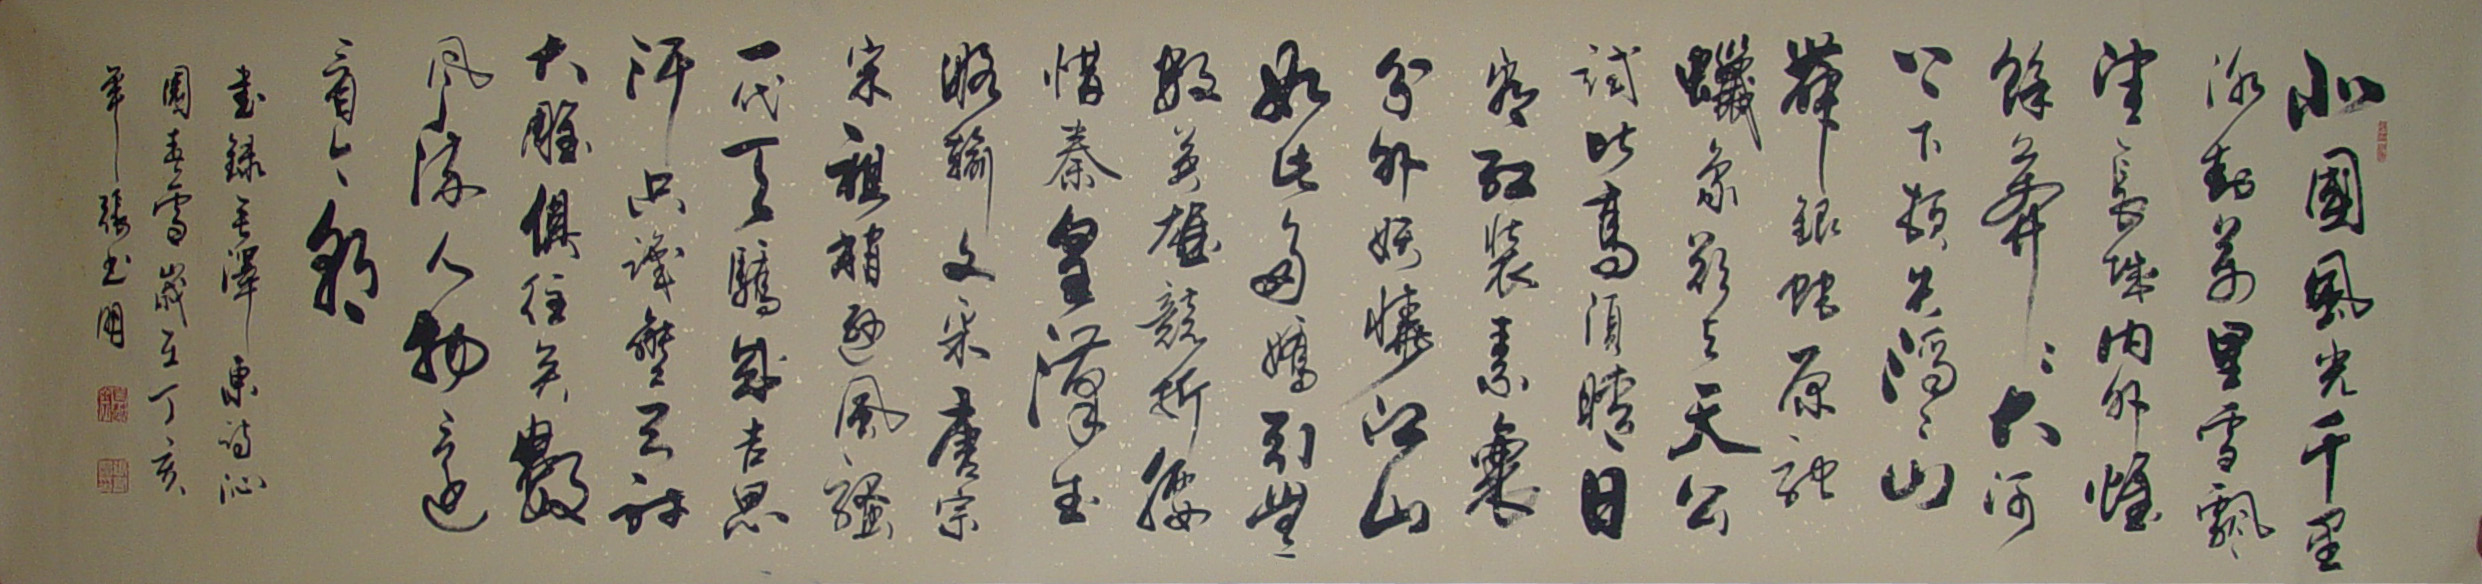 北國風光千里
冰封萬里雪飄
望長城內外惟
餘莽〻大河
上下頓失滔〻山
舞銀蛇原馳
蠟象欲與天公
試比高須晴日
看紅裝素裹
分外妖嬈江山
如此多嬌引無
數英雄競折腰
惜秦皇漢武
略輸文采唐宗
宋祖稍遜風騷
一代天驕成吉思
汗只識彎弓射
大雕俱往矣數
風流人物還
看今朝
書錄毛澤東詩沁
園春雪歲在丁亥
年張